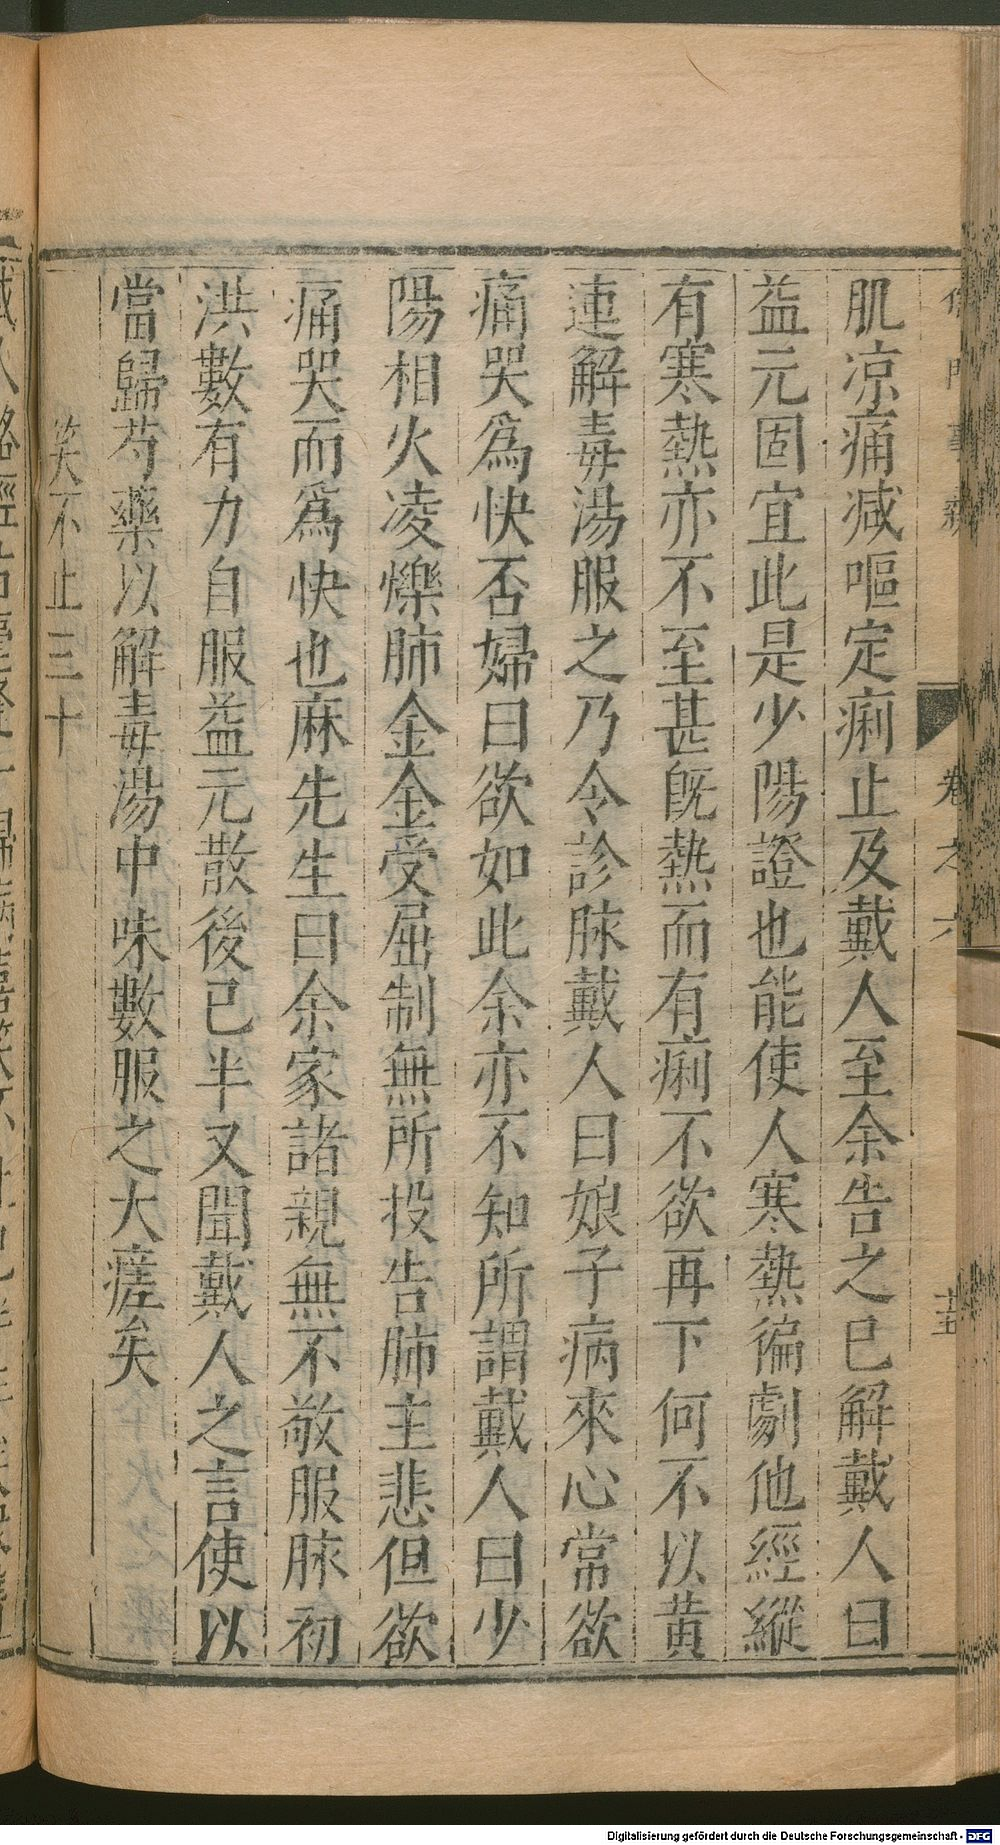 儒門事親 卷之六 十五
肌凉痛减嘔定痢止及戴人至余告之已解戴人曰
益元固宜此是少陽證也能使人寒熱徧劇他經縱
有寒熱亦不至甚旣熱而有痢不欲再下何不以黃
連解毒湯服之乃令診脉戴人曰娘子病來心常欲
痛哭爲快否婦曰欲如此余亦不知所謂戴人曰少
陽相火凌爍肺金金受屈制無所投告肺主悲但欲
痛哭而爲快也麻先生曰余家諸親無不敬服脉初
洪數有力自服益元散後已半又聞戴人之言使以
當歸芍藥以解毒湯中味數服之大瘥矣
笑不止三十
Digitalisierung gefördert durch die Deutsche Forschungsgemeinschaft - DFG